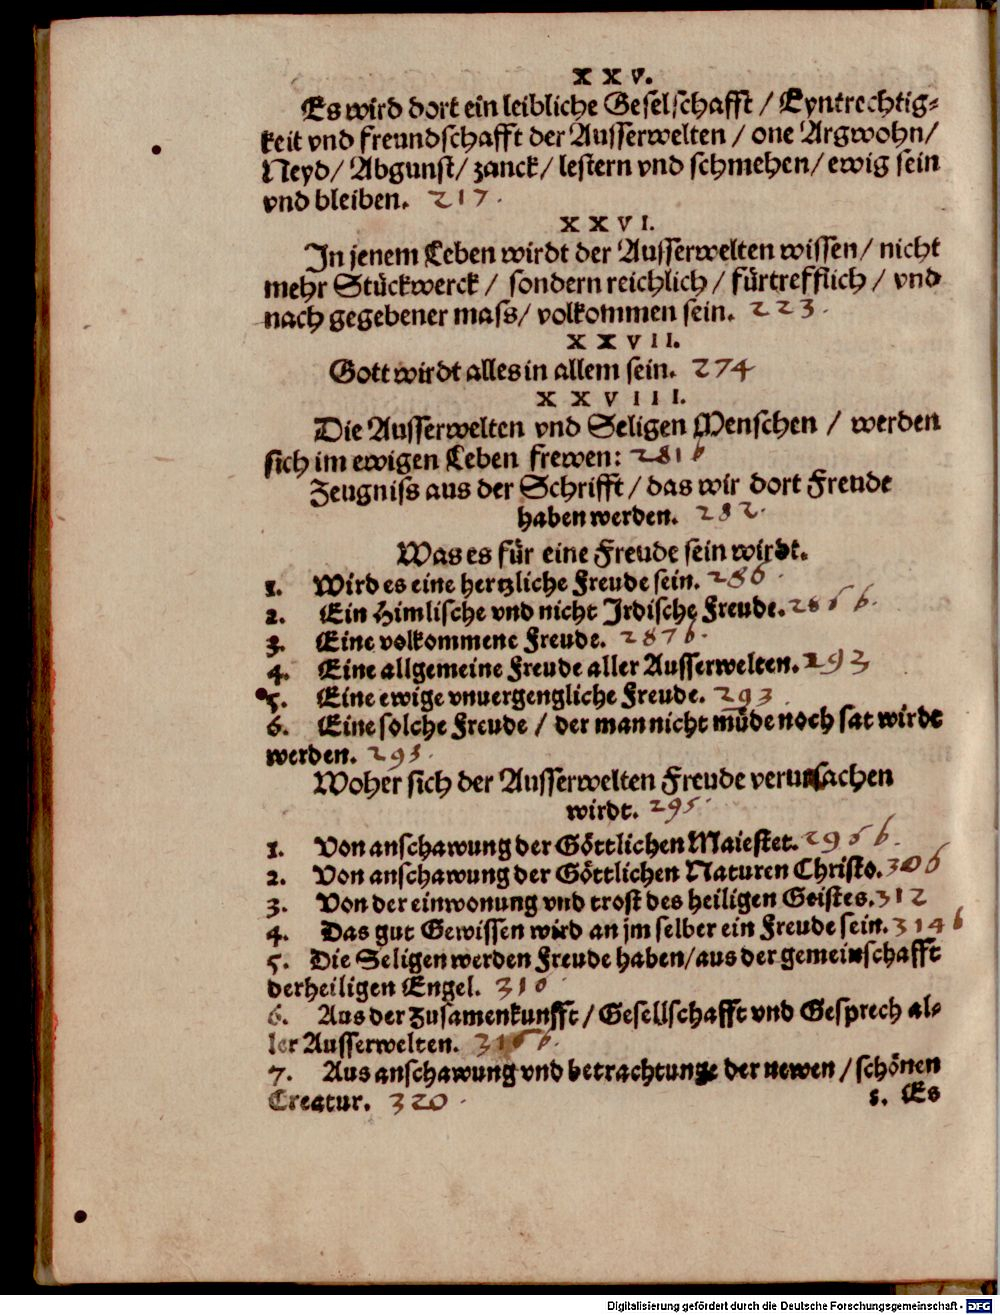 XXV.
Es wird dort ein leibliche Geselschafft / Eyntrechtig-
keit vnd freundschafft der Ausserwelten / one Argwohn/
Neyd/ Abgunst/ zanck/ lestern vnd schmehen/ ewig sein
vnd bleiben. 217.
XXVI.
In jenem Leben wirdt der Ausserwelten wissen/ nicht
mehr Stückwerck / sondern reichlich / fürtrefflich / vnd
nach gegebener mass/ volkommen sein. 223.
XXVII.
Gott wirdt alles in allem sein. 274
XXVIII.
Die Ausserwelten vnd Seligen Menschen / werden
sich im ewigen Leben frewen: 281 b
Zeugniss aus der Schrifft / das wir dort Freude
haben werden. 282.
Was es für eine Freude sein wirdt.
1. Wird es eine hertzliche Freude sein. 286.
2. Ein Himlische vnd nicht Irdische Freude. 286 b.
3. Eine volkommene Freude. 287 b.
4. Eine allgemeine Freude aller Ausserwelten. 293
5. Eine ewige vnuergengliche Freude. 293
6. Eine solche Freude / der man nicht müde noch sat wirdt
werden. 293.
Woher sich der Ausserwelten Freude verursachen
wirdt. 295.
1. Von anschawung der Göttlichen Maiestet. 295 b.
2. Von anschawung der Göttlichen Naturen Christo. 306
3. Von der einwonung vnd trost des heiligen Geistes. 312
4. Das gut Gewissen wird an jm selber ein Freude sein. 314 b
5. Die Seligen werden Freude haben/ aus der gemeinschafft
der heiligen Engel. 316
6. Aus der Zusamenkunfft / Gesellschafft vnd Gesprech al-
ler Ausserwelten. 316 b.
7. Aus anschawung vnd betrachtunge der newen / schönen
Creatur. 320.
s. Es
Digitalisierung gefördert durch die Deutsche Forschungsgemeinschaft - DFG